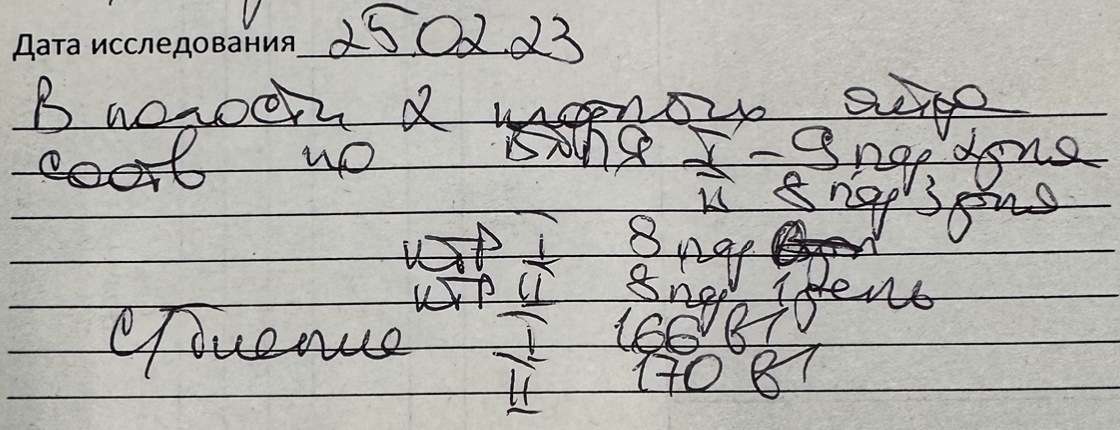 Дата исследования 25 02 23
В полости 2 плодных яйца
соотв по I - 9 нед 2 дня
II 8 нед 3 дня
КТР I 8 нед
КТР II 8 нед 1 день
С/биение I 166 в 1
II 170 в 1